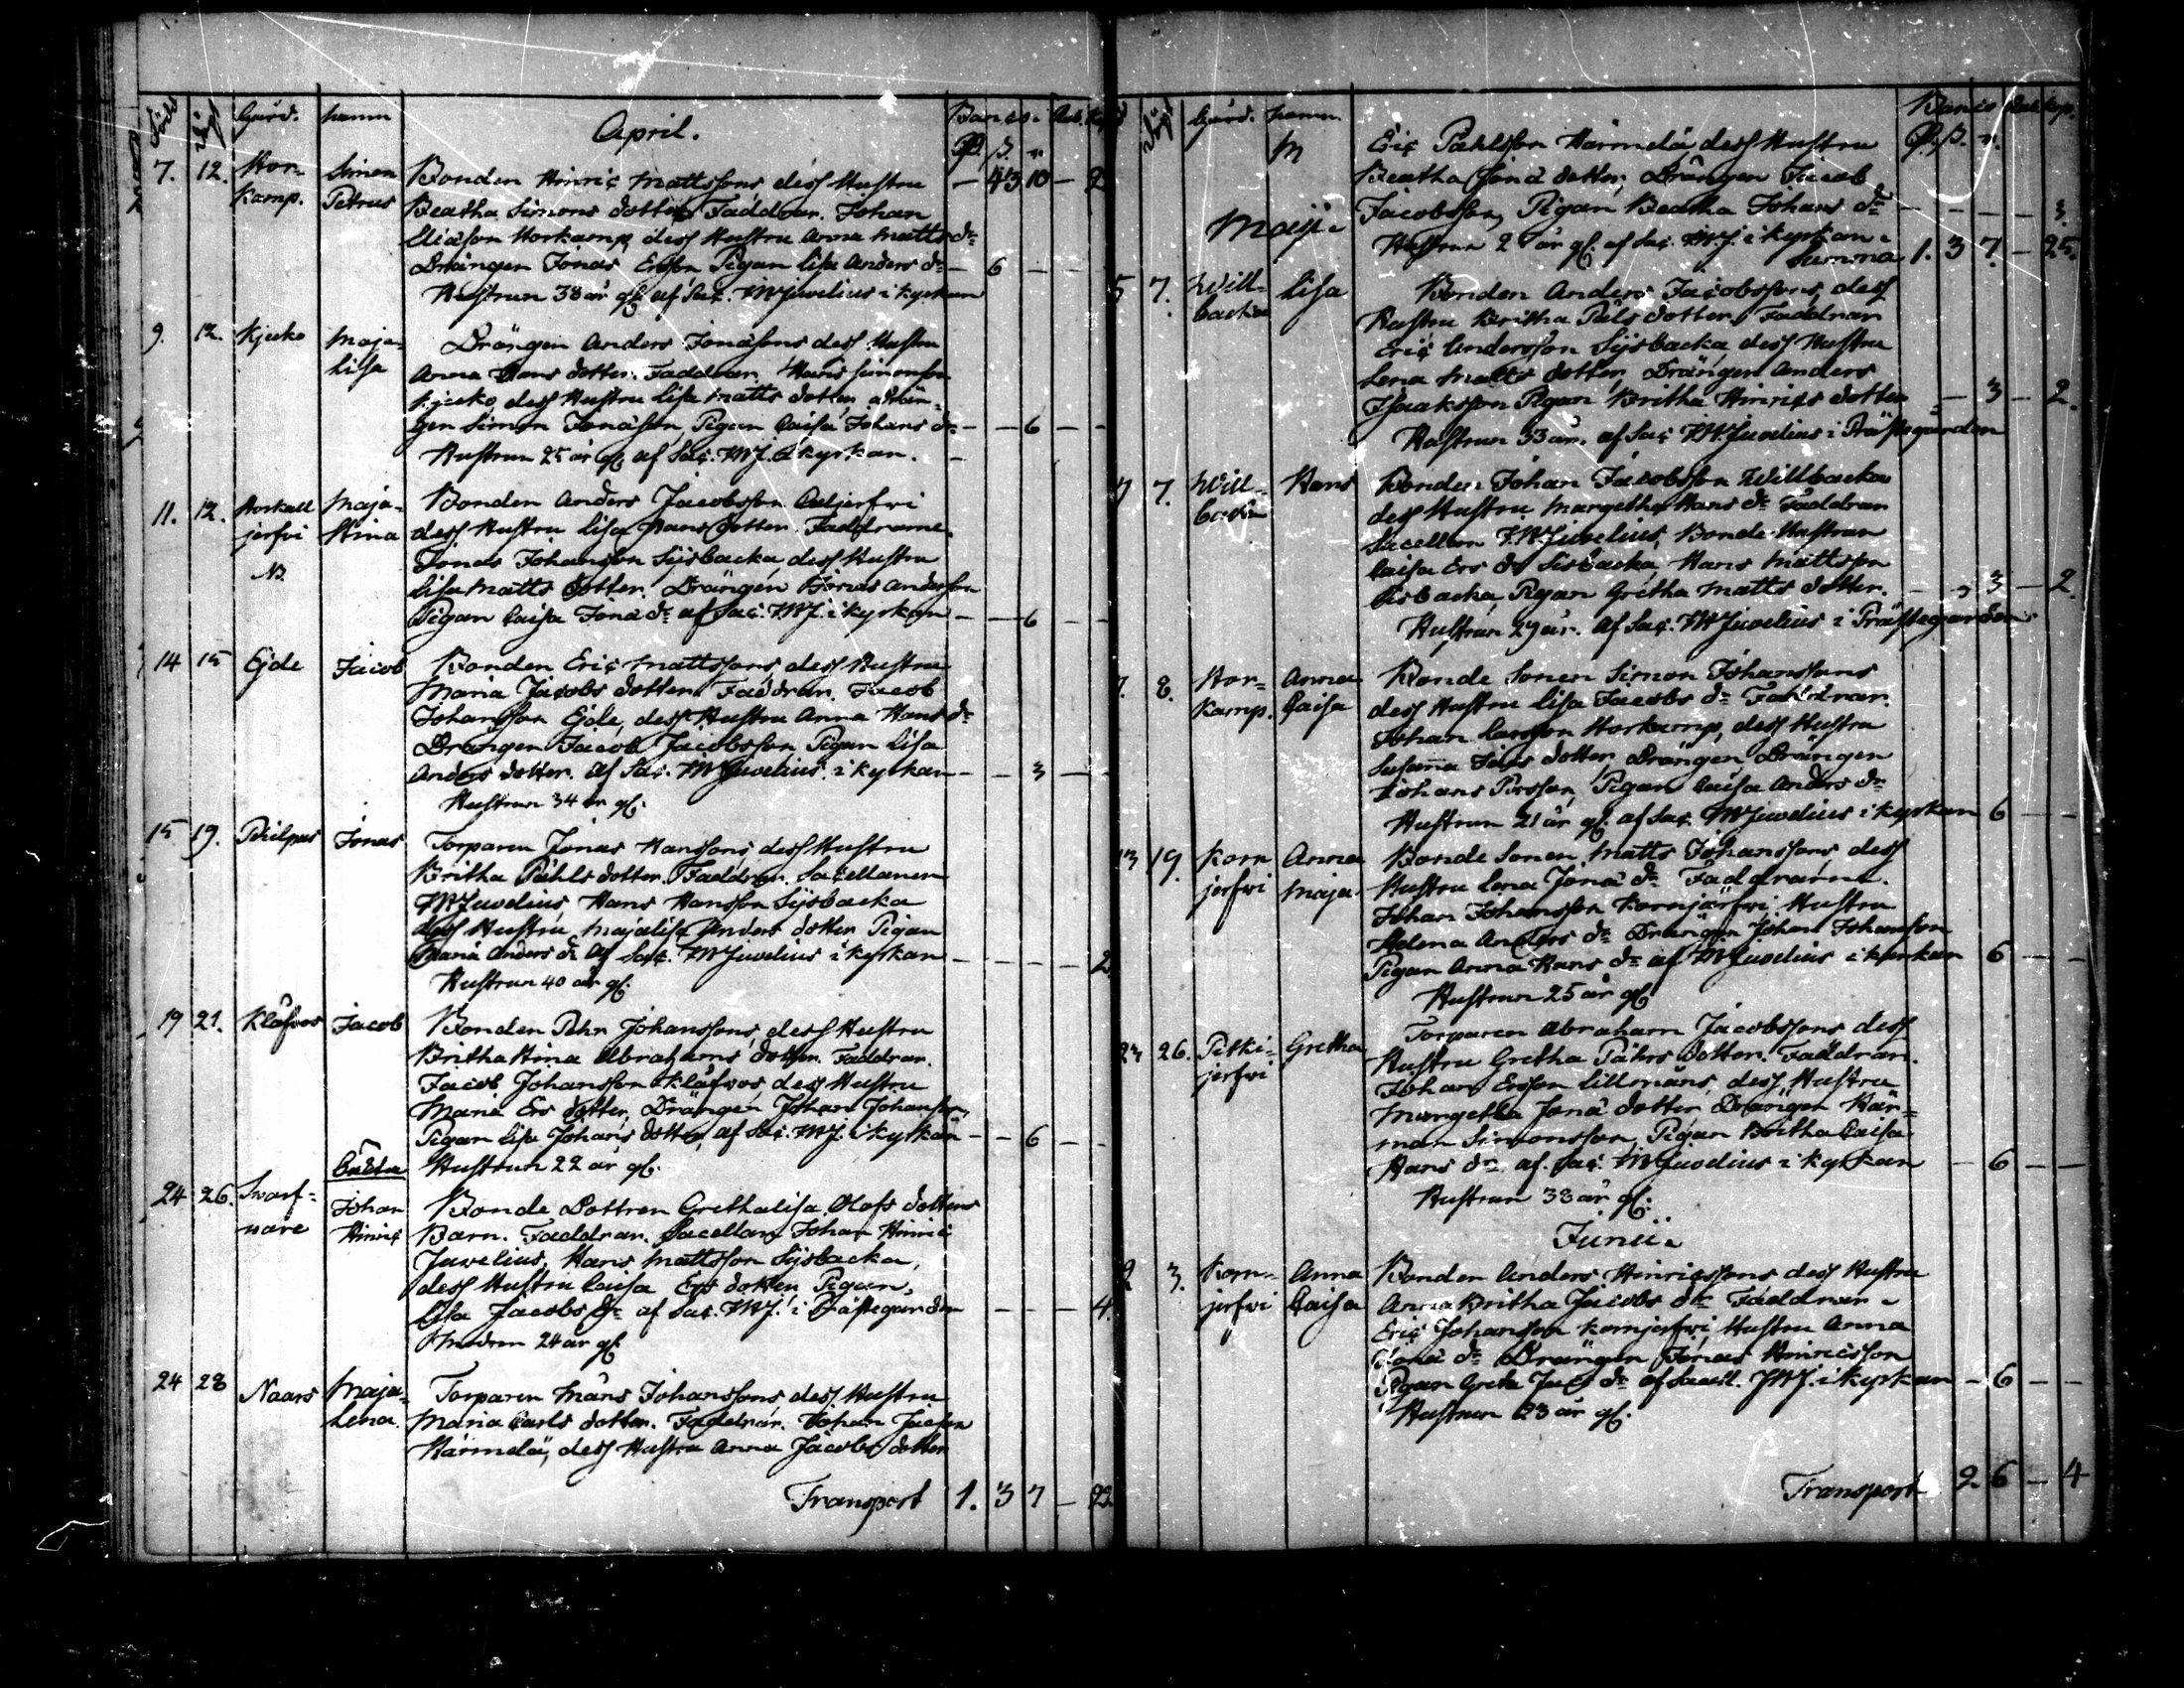 Född Döpt Gård. namn April. Banco. Rub. Kop.
R. β. r.
7. 12. Hor- Simon Bonden Hinric Mattssons dess Hustru — 43 10 — 2
kamp. Petrus Beatha Simons dotter Faddrar. Johan
Eliasson Horkamp, dess Hustru Anna Matts dr
Drängen Jonas Ersson Pigan Lisa Anders dr — 6 — —
Hustrun 38 år gl. af Sac. JWJuvelius i kyrkan
9. 12. Kjecko Maja- Drängen Anders Jonassons dess Hustru
Lisa Anna Hans dotter. Faddrar. Hans Simonsson
Kjecko, dess Hustru Lisa Matts dotter, drän-
gen Simon Jonasson, Pigan Caisa Johans dr — — 6 — —
Hustrun 25 år gl. af Sac. JWJ. i kyrkan. —
11. 12. Maja- Bonden Anders Jacobsson
jerfvi Stina dess Hustru Lisa Hans dotter. Faddrarne.
N. Jonas Johansson Sijsbacka dess Hustru
Lisa Matts dotter. Drängen Jonas Andersson
Pigan Caisa Jona dr af Sac. JWJ. i kyrkan — — 6 — —
14 15 Ejde Jacob Bonden Eric Mattssons dess Hustru
Maria Jacobs dotter. Faddrar. Jacob
Johansson Ejde, dess Hustru Anna Hans dr
Drängen Jacob Jacobsson Pigan Lisa
Anders dotter. af Sac. JWJuvelius i kyrkan — — 3 — —
Hustrun 34 år gl.
15 19. Philpus Jonas Torparen Jonas Hanssons, dess Hustru
Britha Påhls dotter. Faddrar. Sacellanen
JWJuvelius Hans Hansson Sijsbacka
dess Hustru, Majalisa Anders dotter Pigan
Maria Anders dr af Sac. JWJuvelius i kyrkan — — — — 2
Hustrun 40 år gl.
19 21. Klåfvos Jacob Bonden Pehr Johanssons, dess Hustru
Britha Stina Abrahams dotter. Faddrar.
Jacob Johansson Klåfvos, dess Hustru
Maria Ers dotter, Drängen Johan Johansson,
Pigan Lisa Johans dotter, af Sac. JWJ. i kyrkan — — 6 — —
Oäkta Hustrun 22 år gl.
24 26. Svarf- Johan Bonde Dottren Grethalisa Olofs dotters
vare Hinric Barn. Faddrar. Sacellan Johan Hinric
Juvelius, Hans Mattsson Sijsbacka,
dess Hustru Caisa Ers dotter Pigan,
Lisa Jacobs dr af Sac. JWJ. i Prästegarden — — — — 4.
Modren 24 år gl.
24 28 Naars Maja- Torparen Måns Johanssons, dess Hustru
Lena. Maria Carls dotter. Faddrar. Johan
Härmelä, dess Hustru Anna Jacobs dotter
Transport 1. 3 7 — 22
Döpt Gård. namn. Banco Rub. kop.
Eric Påhlsson Härmelä dess Hustru R. β. r.
Beatha Jona dotter, Drängen Jacob
Jacobsson, Pigan Beatha Johans dr — — — — 3.
Maji. Hustrun 2 år gl. af Sac. JWJ. i kyrkan.
Summa 1. 3 7. — 25.
5 7. Will- Lisa Bonden Anders Jacobssons, dess
backa Hustru Britha Påls dotter. Faddrar
Eric Andersson Sijsbacka, dess Hustru
Lena Matts dotter, Drängen Anders
Isaaksson Pigan Britha Hinrics dotter — 3 — 2.
Hustrun 33 år. af Sac JWJuvelius i Prästegården
7 7. Will- Hans Bonden Johan Jacobsson Willbacka
backa dess Hustru Margetha Hans dr Faddrar
Sacellan JWJuvelius, Bonde Hustrun
Caisa Ers dr Sisbacka, Hans Mattsson
Sisbacka Pigan Gretha Matts dotter. — 3 — 2.
Hustrun 29 år. af Sac. JWJuvelius i Prästegarden
7. 8. Hor- Anna Bonde Sonen Simon Johanssons
kamp. Caisa dess Hustru Lisa Jacobs dr Faddrar.
Johan Larsson Horkamp, dess Hustru
Susanna dotter Drängen Drängen
Johans Persson, Pigan Caisa Anders dr
Hustrun 21 år gl. af Sac. JWJuvelius i kyrkan 6 — —
13 19. Korn Anna Bonde Sonen Matts Johanssons, dess
jerfvi Maja. Hustru Lena Jona dr Faddrarne.
Johan Johansson Kornjärfvi Hustru
Helena Anders dr Drängen Johan Johansson
Pigan Anna Hans dr af JWJuvelius i kyrkan 6 — —
Hustrun 25 år gl
23 26. Pitki- Gretha Torparen Abraham Jacobssons dess
jerfvi Hustru Gretha Påhrs dotter. Faddrar.
Johan Ersson Lillmåns, dess Hustru
Margetha Jona dotter Drängen Här-
man Simonsson, Pigan Britha Caisa
Hans dr. af. Sac. JWJuvelius i kyrkan — 6 — —
Hustrun 38 år gl.
Junii.
2 3. Korn- Anna Bonden Anders Hinricssons dess Hustru
jerfvi Caisa Anna Britha Jacobs dr Faddrar.
Eric Johansson Kornjerfvi, Hustru Anna
Jona dr Drängen Jonas Hinricsson
Pigan Greta dr af Sacell. JWJ. i kyrkan — 6 — —
Hustrun 23 år gl.
Transport 2. 6 — 4